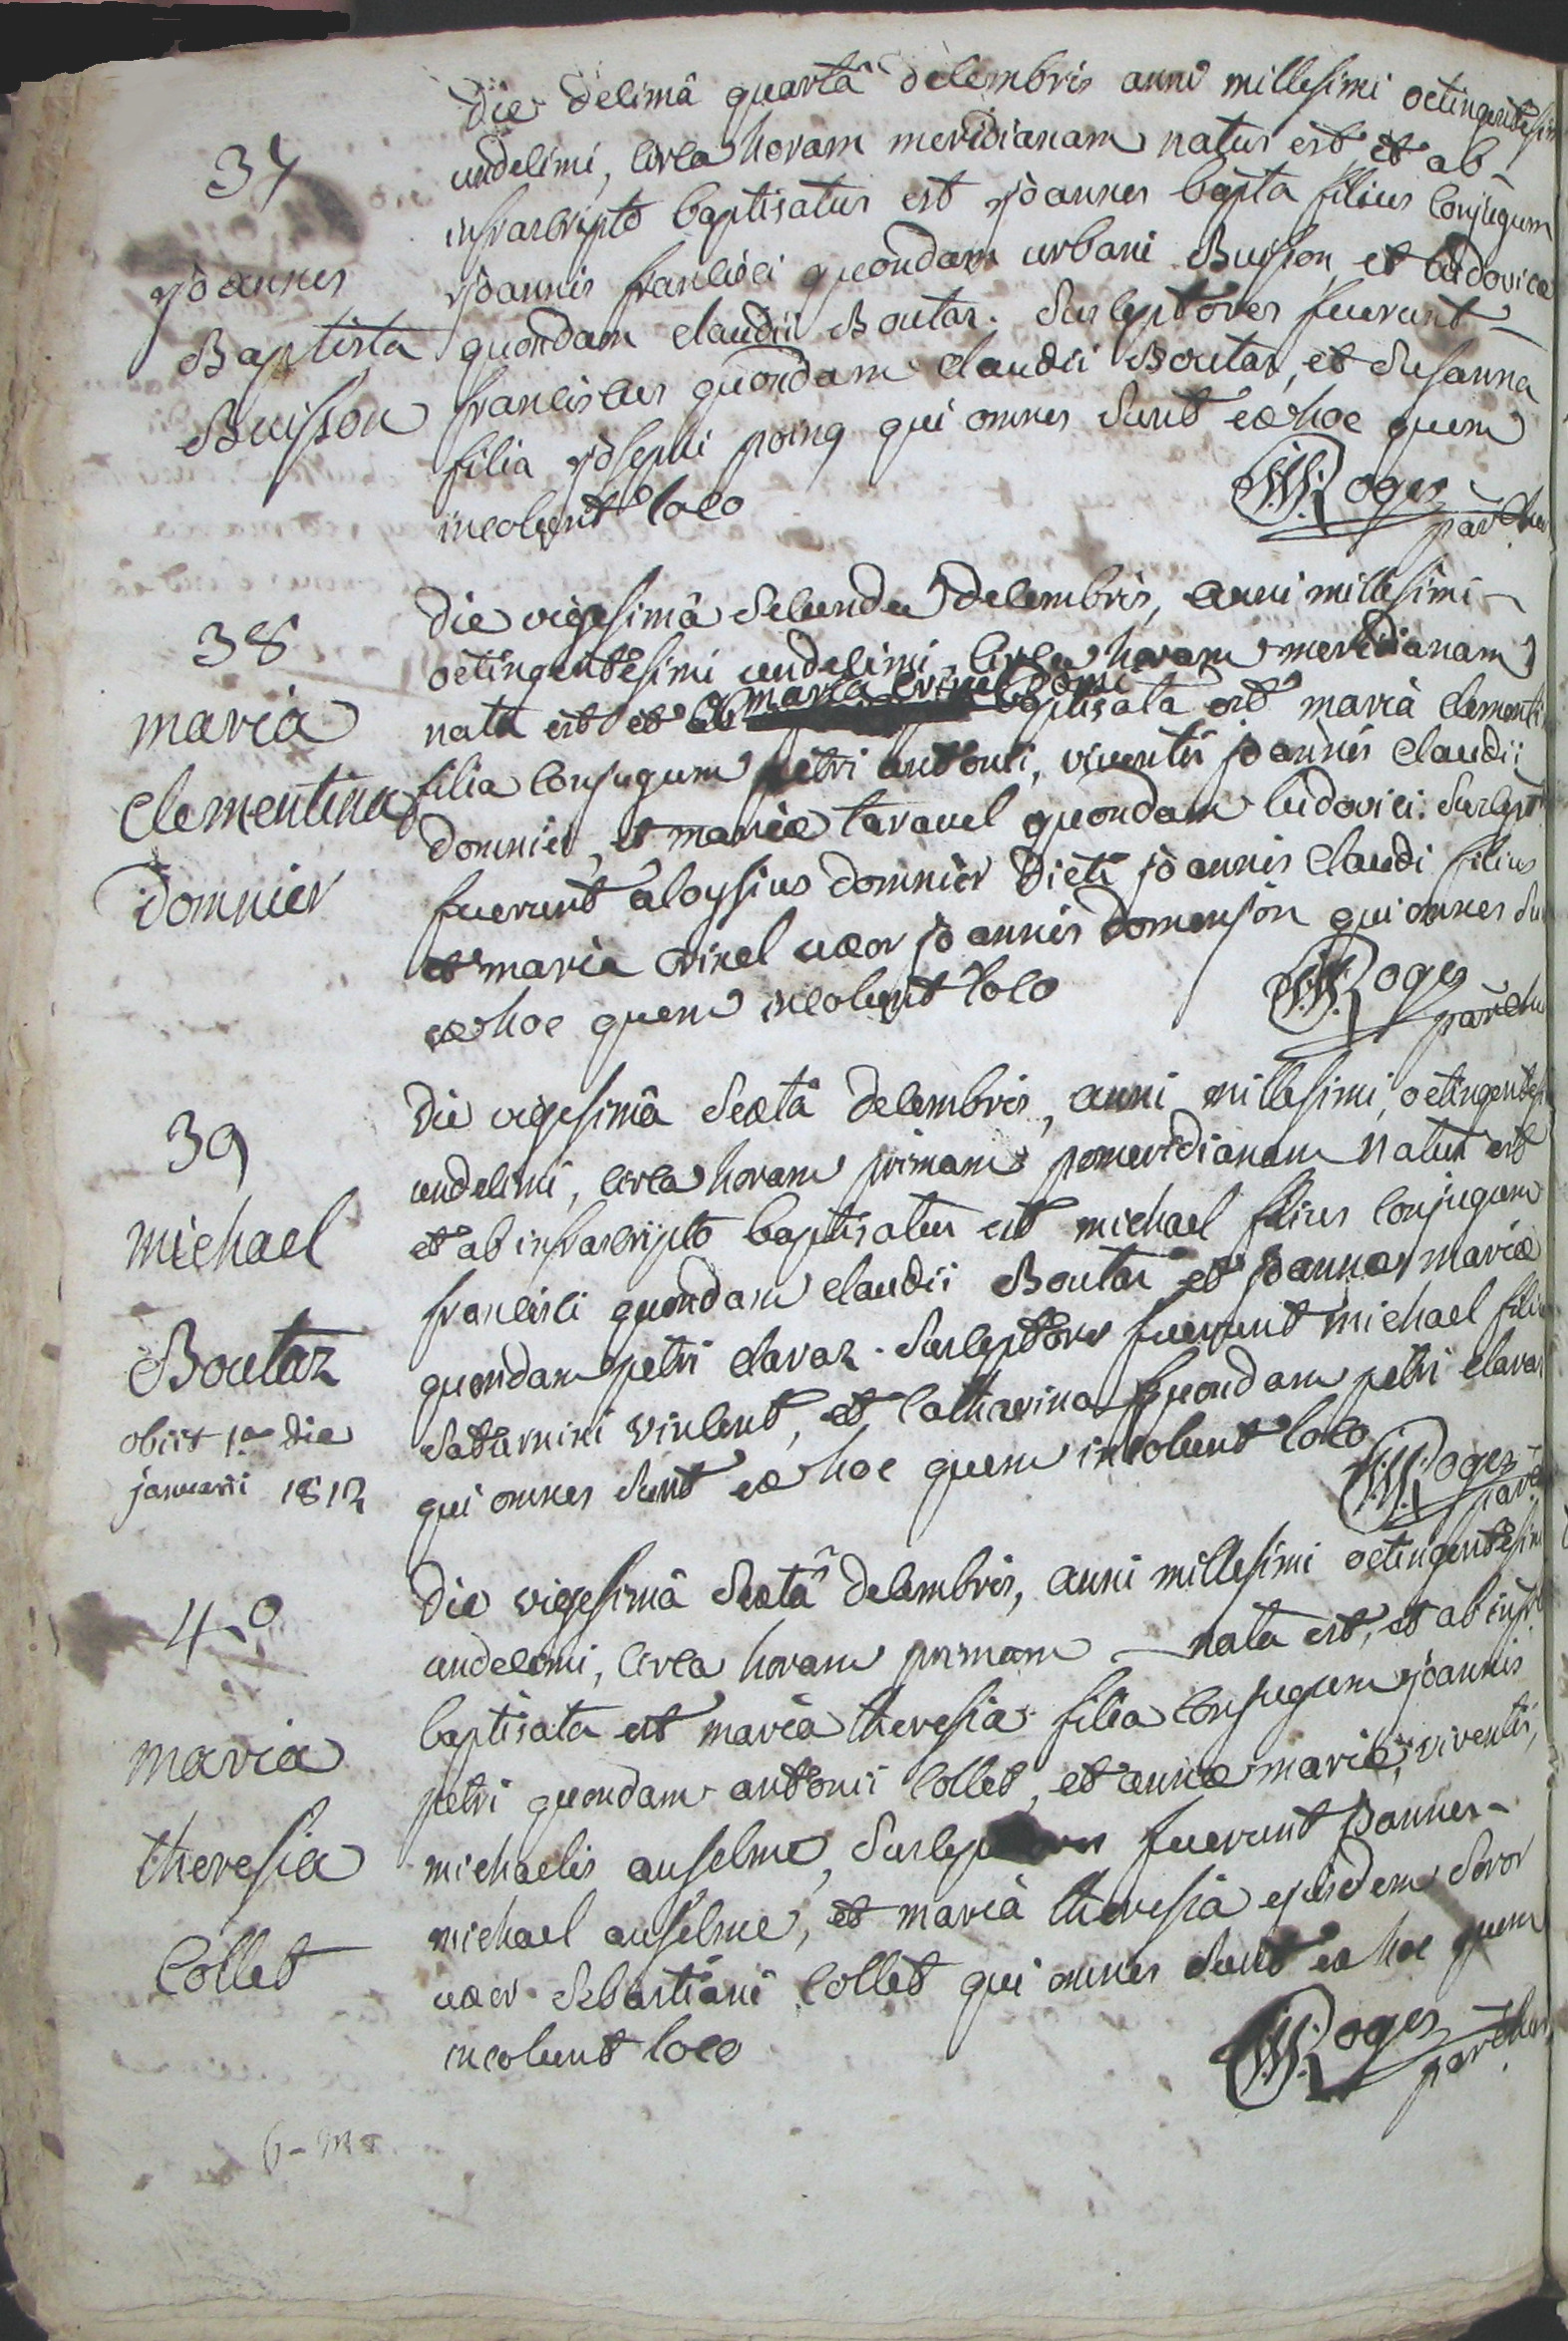 37
joannes
Baptista
Buisson
Die decimâ quartâ decembris anni millesimi octingentesimi
undecimi, circa horam meridianam natus est et ab
infrascripto baptisatus est joannes bapta filius conjugum
joannis francisci quondam urbani Buisson, et ludovica
quondam claudii Boutaz. Susceptores fuerunt
franciscus quondam claudii Boutaz, et Susanna
filia josephi poing qui omnes sunt ex hoc quem
incolunt loco
Rogez
parchus
38
maria
Clementina
Domnier
Die vigesimâ Secunda Decembris, anni millesimi
octingentesimi undecimi, circa horam meridianam
nata est et a maria crinel domi baptisata est maria clementi
filia conjugum petri antonii, viventis joannis claudii
domnier, et mariæ taravel quondam ludovici. Suscept
fuerunt aloysius domnier dicti joannis claudi filius
et maria crinel uxor joannis Domenjon qui omnes su
ex hoc quem incolunt loco
Rogez
parchu
39
michael
Boutaz
obiit 1ª die
januarii 1812
Die vigesimâ Sextâ decembris, anni millesimi, octingentesi
undecimi, circa horam primam pomeridianam natus est
et ab infrascripto baptisatus est michael filius conjugum
francisci quondam claudii Boutaz et joannæ mariæ
quondam petri claraz. Susceptores fuerunt michael filiu
Saturnini vincent, et catharina quondam petri claraz
qui omnes sunt ex hoc quem incolunt loco
Rogez
parch
40
maria
theresia
Collet
Die vigesimâ Sextâ decembris, anni millesimi octingentesim
undecimi, circa horam primam nata est, et ab infr
baptisata est maria theresia filia conjugum joannis
petri quondam antonii Collet, et annæ mariæ, viventis,
michaelis anselme, Susceptores fuerunt joannes
michael anselme, et maria theresia ejusdem soror
uxor Sebastiani Collet qui omnes sunt ex hoc quem
incolunt loco
Rogez
parchus